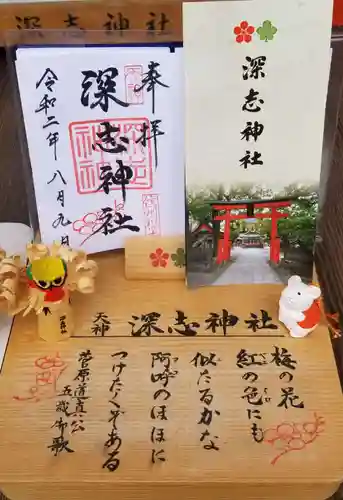 深志神社
奉拝
深志神社
令和二年八月九日
深志神社
天神 深志神社
梅の花
紅の色にも
似たるかな
阿呼のほほに
つけたくぞある
菅原道真公
五歳御歌